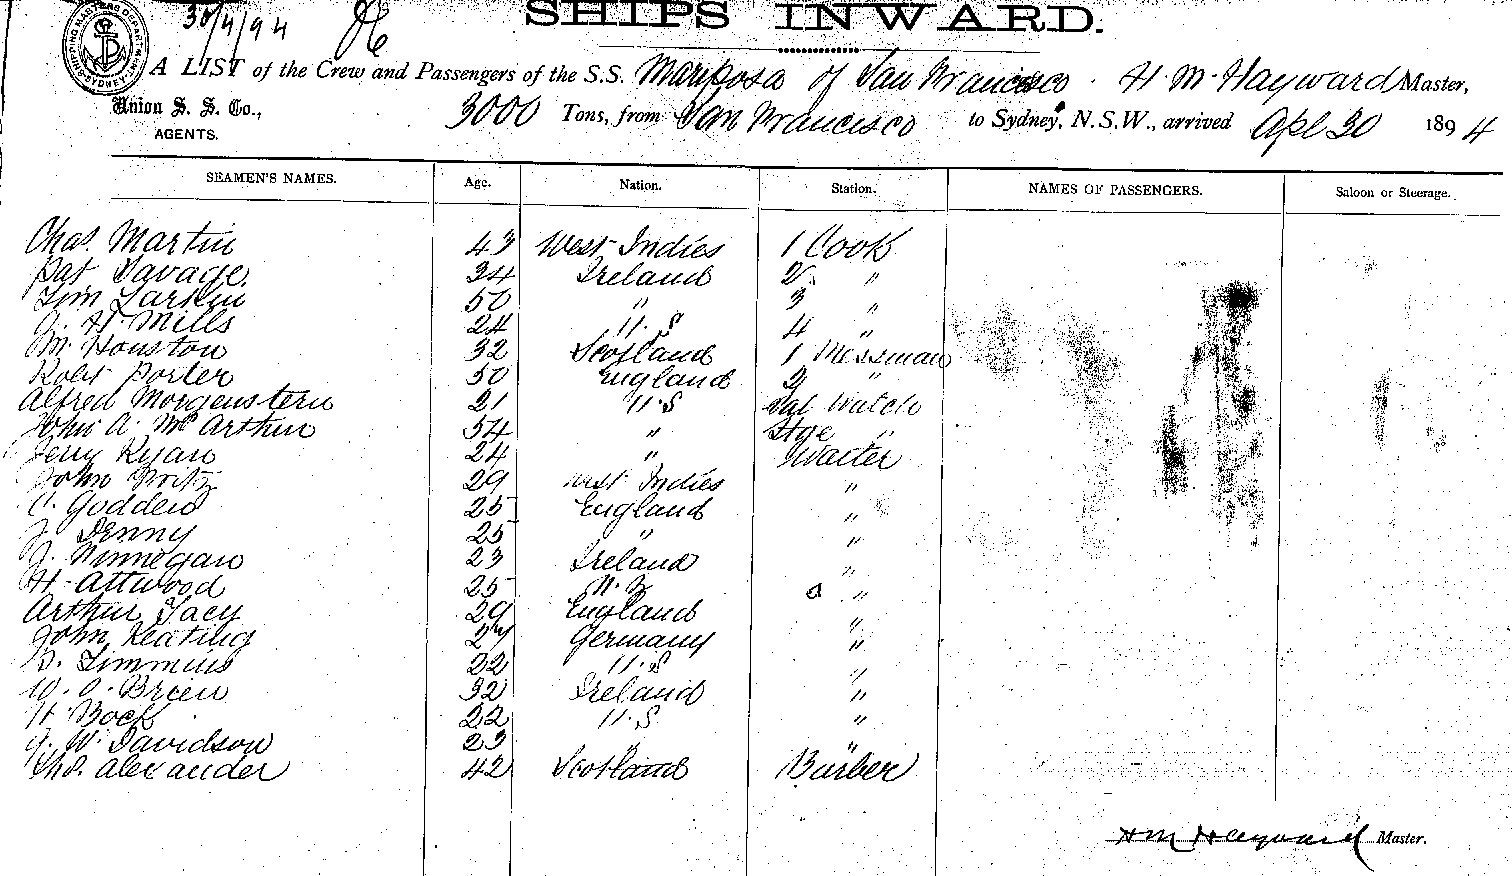 30/4/94
SHIPS INWARD.
SHIPPING MASTERS DEPARTMENT SYDNEY
A LIST of the Crew and Passengers of the S.S. Mariposa of San Francisco. H. M. Hayward Master,
Union S. S. Co., AGENTS. 3000 Tons, from San Francisco to Sydney, N.S.W., arrived Apl 30 1894
SEAMEN'S NAMES. Age. Nation. Station. NAMES OF PASSENGERS. Saloon or Steerage.
Chas. Martin 43 West Indies 1 Cook
Pat Savage 34 Ireland 2 "
Tim Larkin 50 " 3 "
J. H. Mills 24 U.S 4 "
M. Houston 32 Scotland 1 Messman
Robt Porter 50 England 2 "
Alfred Morgenstern 21 U.S Sal Watch
John A. McArthur 54 " Stge "
Jerry Ryan 24 " Waiter
John Fritz 29 West Indies "
C. Godden 25 England "
J. Denny 25 " "
J. Finnegan 23 Ireland "
H. Attwood 25 N.Z "
Arthur Tacy 29 England "
John Keating 27 Germany "
B. Timmins 22 U.S "
W. O. Brien 32 Ireland "
H. Bock 22 U.S. "
J. W. Davidson 23 "
Thos. Alexander 42 Scotland Barber
H M Hayward Master.